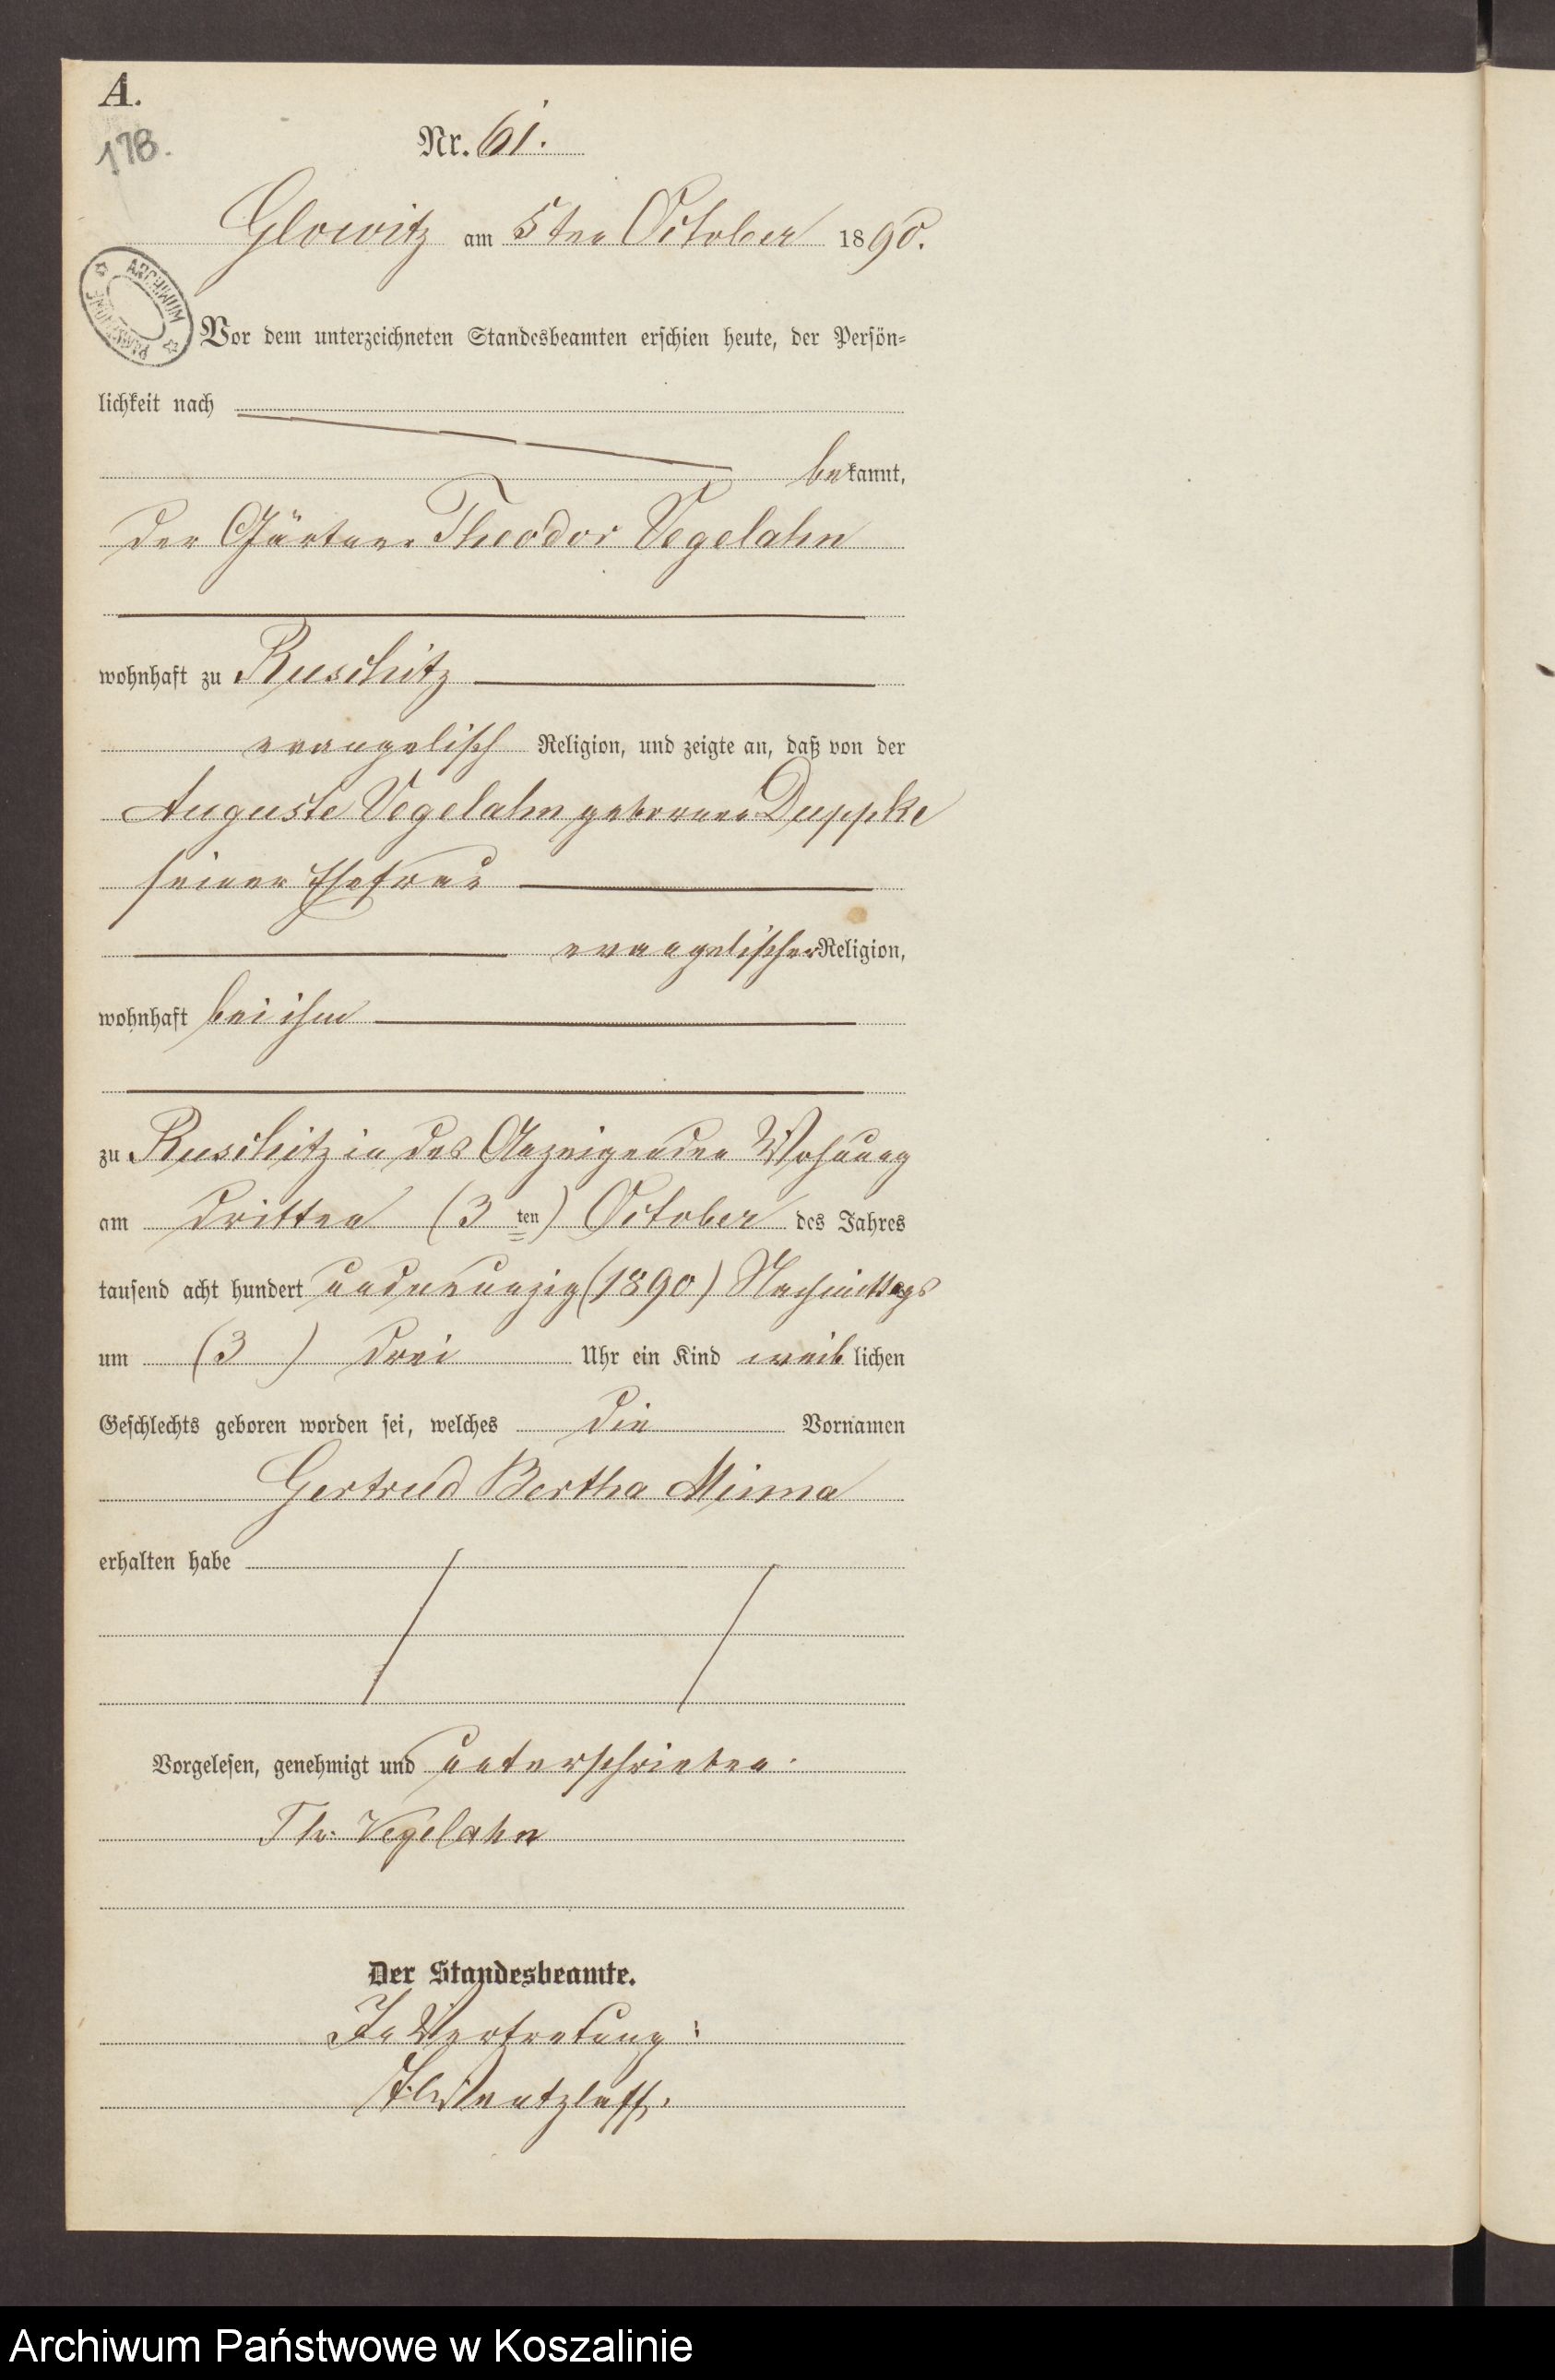 A.
178.
Nr. 61.
Glowitz am 5ten October 1890.
ARCHIWUM PAŃSTWOWE
Vor dem unterzeichneten Standesbeamten erschien heute, der Persön-
lichkeit nach
bekannt,
der Gärtner Theodor Vegelahn
wohnhaft zu Ruschitz
evangelisch Religion, und zeigte an, daß von der
Auguste Vegelahn geborenen Duppke
seiner Ehefrau
evangelischer Religion,
wohnhaft bei ihm
zu Ruschitz in des Anzeigenden Wohnung
am dritten (3 ten) October des Jahres
tausend acht hundert undneunzig (1890) Nachmittags
um (3 ) drei Uhr ein Kind weiblichen
Geschlechts geboren worden sei, welches die Vornamen
Gertrud Bertha Minna
erhalten habe
Vorgelesen, genehmigt und unterschrieben.
Th. Vegelahn
Der Standesbeamte.
In Vertretung:
Wentzlaff.
Archiwum Państwowe w Koszalinie